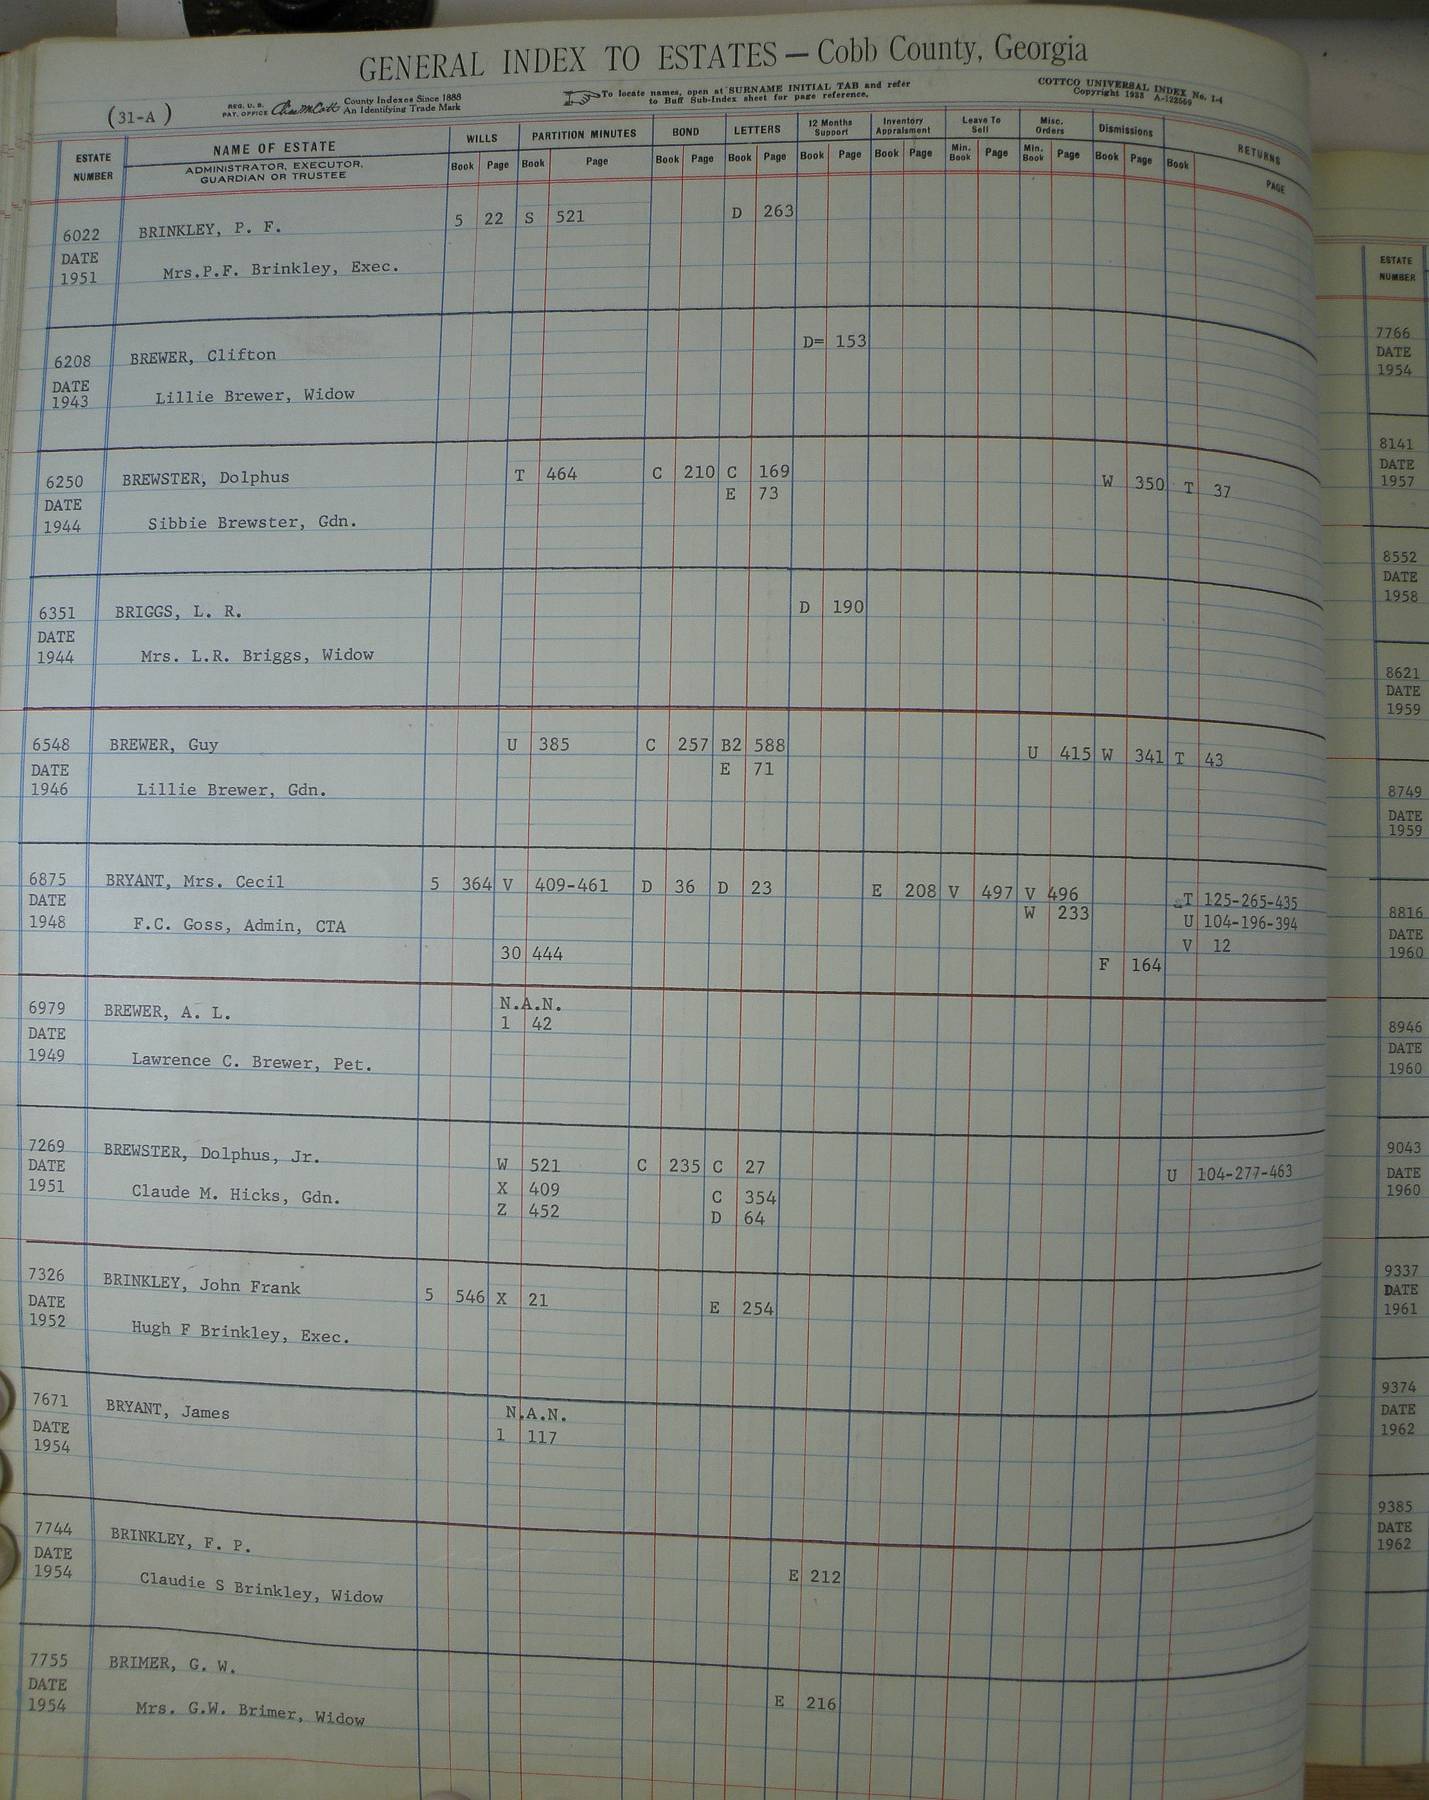 GENERAL INDEX TO ESTATES — Cobb County, Georgia
(31-A)
REG. U. S. PAT. OFFICE
County Indexes Since 1888
An Identifying Trade Mark
To locate names, open at SURNAME INITIAL TAB and refer
to Buff Sub-Index sheet for page reference.
COTTCO UNIVERSAL INDEX No. 1-4
Copyright 1935 A-122569
ESTATE NUMBER
NAME OF ESTATE
ADMINISTRATOR, EXECUTOR, GUARDIAN OR TRUSTEE
WILLS PARTITION MINUTES BOND LETTERS 12 Months Support Inventory Appraisment Leave To Sell Misc. Orders Dismissions RETURNS
Book Page Book Page Book Page Book Page Book Page Book Page Min. Book Page Min. Book Page Book Page Book PAGE
6022 BRINKLEY, P. F. 5 22 S 521 D 263
DATE
1951 Mrs.P.F. Brinkley, Exec.
6208 BREWER, Clifton D= 153
DATE
1943 Lillie Brewer, Widow
6250 BREWSTER, Dolphus T 464 C 210 C 169 W 350 T 37
E 73
DATE
1944 Sibbie Brewster, Gdn.
6351 BRIGGS, L. R. D 190
DATE
1944 Mrs. L.R. Briggs, Widow
6548 BREWER, Guy U 385 C 257 B2 588 U 415 W 341 T 43
DATE E 71
1946 Lillie Brewer, Gdn.
6875 BRYANT, Mrs. Cecil 5 364 V 409-461 D 36 D 23 E 208 V 497 V 496 T 125-265-435
DATE W 233 U 104-196-394
1948 F.C. Goss, Admin, CTA V 12
30 444 F 164
6979 BREWER, A. L. N.A.N.
1 42
DATE
1949 Lawrence C. Brewer, Pet.
7269 BREWSTER, Dolphus, Jr. W 521 C 235 C 27 U 104-277-463
DATE X 409 C 354
1951 Claude M. Hicks, Gdn. Z 452 D 64
7326 BRINKLEY, John Frank 5 546 X 21 E 254
DATE
1952 Hugh F Brinkley, Exec.
7671 BRYANT, James N.A.N.
DATE 1 117
1954
7744 BRINKLEY, F. P.
DATE E 212
1954 Claudie S Brinkley, Widow
7755 BRIMER, G. W.
DATE E 216
1954 Mrs. G.W. Brimer, Widow
ESTATE NUMBER
7766
DATE
1954
8141
DATE
1957
8552
DATE
1958
8621
DATE
1959
8749
DATE
1959
8816
DATE
1960
8946
DATE
1960
9043
DATE
1960
9337
DATE
1961
9374
DATE
1962
9385
DATE
1962